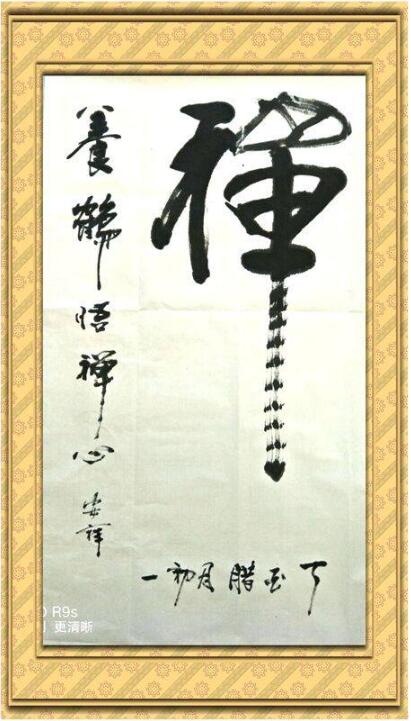 禅
養鶴悟禅心
安祥
丁酉腊月初一
R9s
更清晰